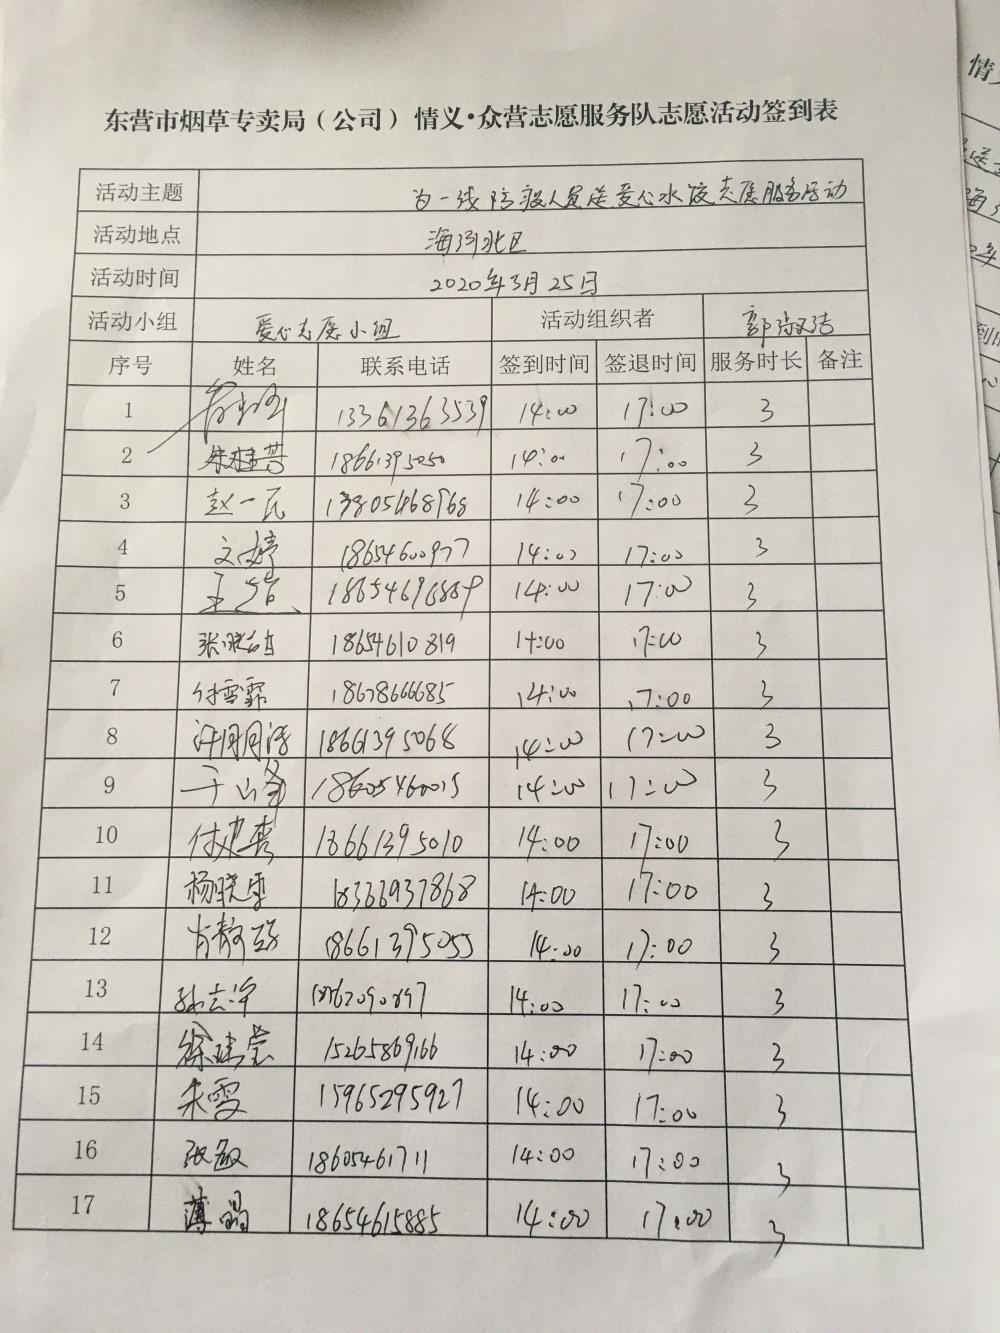 东营市烟草专卖局（公司）情义·众营志愿服务队志愿活动签到表
活动主题 为一线防疫人员送爱心水饺志愿服务活动
活动地点 海河北区
活动时间 2020年3月25日
活动小组 爱心志愿小组 活动组织者 郭淑洁
序号 姓名 联系电话 签到时间 签退时间 服务时长 备注
1 13361363539 14:00 17:00 3
2 朱桂芸 18661395050 14:00 17:00 3
3 赵一民 13805468968 14:00 17:00 3
4 文婷 18654600977 14:00 17:00 3
5 王 14:00 17:00 3
6 张晓 18654610819 14:00 17:00 3
7 付雪霏 18678666685 14:00 17:00 3
8 18661395068 14:00 17:00 3
9 于山峰 18605460015 14:00 17:00 3
10 付建秀 18661395010 14:00 17:00 3
11 杨晓雪 18366937868 14:00 17:00 3
12 肖静 18661395055 14:00 17:00 3
13 孙 14:00 17:00 3
14 徐瑞莹 15265869166 14:00 17:00 3
15 朱雯 15965295927 14:00 17:00 3
16 张敏 18605461711 14:00 17:00 3
17 薄晶 18654615885 14:00 17:00 3
情义